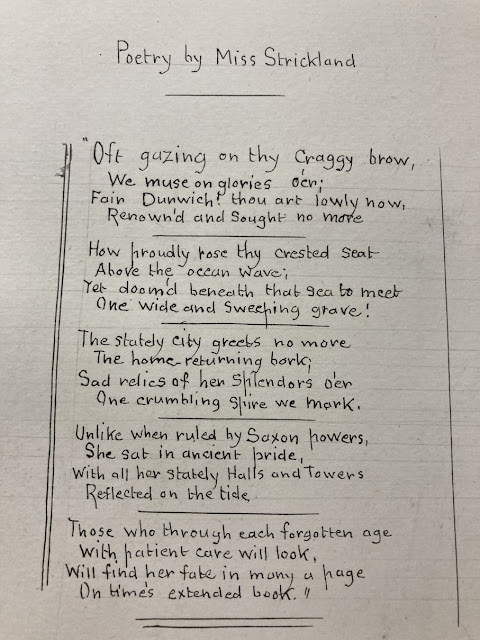 Poetry by Miss Strickland
"Oft gazing on thy Craggy brow,
We muse on glories o'er;
Fair Dunwich! thou art lowly now,
Renown'd and Sought no more
How proudly rose thy crested Seat
Above the ocean wave;
Yet doom'd beneath that sea to meet
One wide and sweeping grave!
The stately city greets no more
The home-returning bark;
Sad relics of her splendors o'er
One crumbling Spire we mark.
Unlike when ruled by Saxon powers,
She sat in ancient pride,
With all her stately Halls and Towers
Reflected on the tide
Those who through each forgotten age
With patient care will look,
Will find her fate in many a page
On time's extended book."